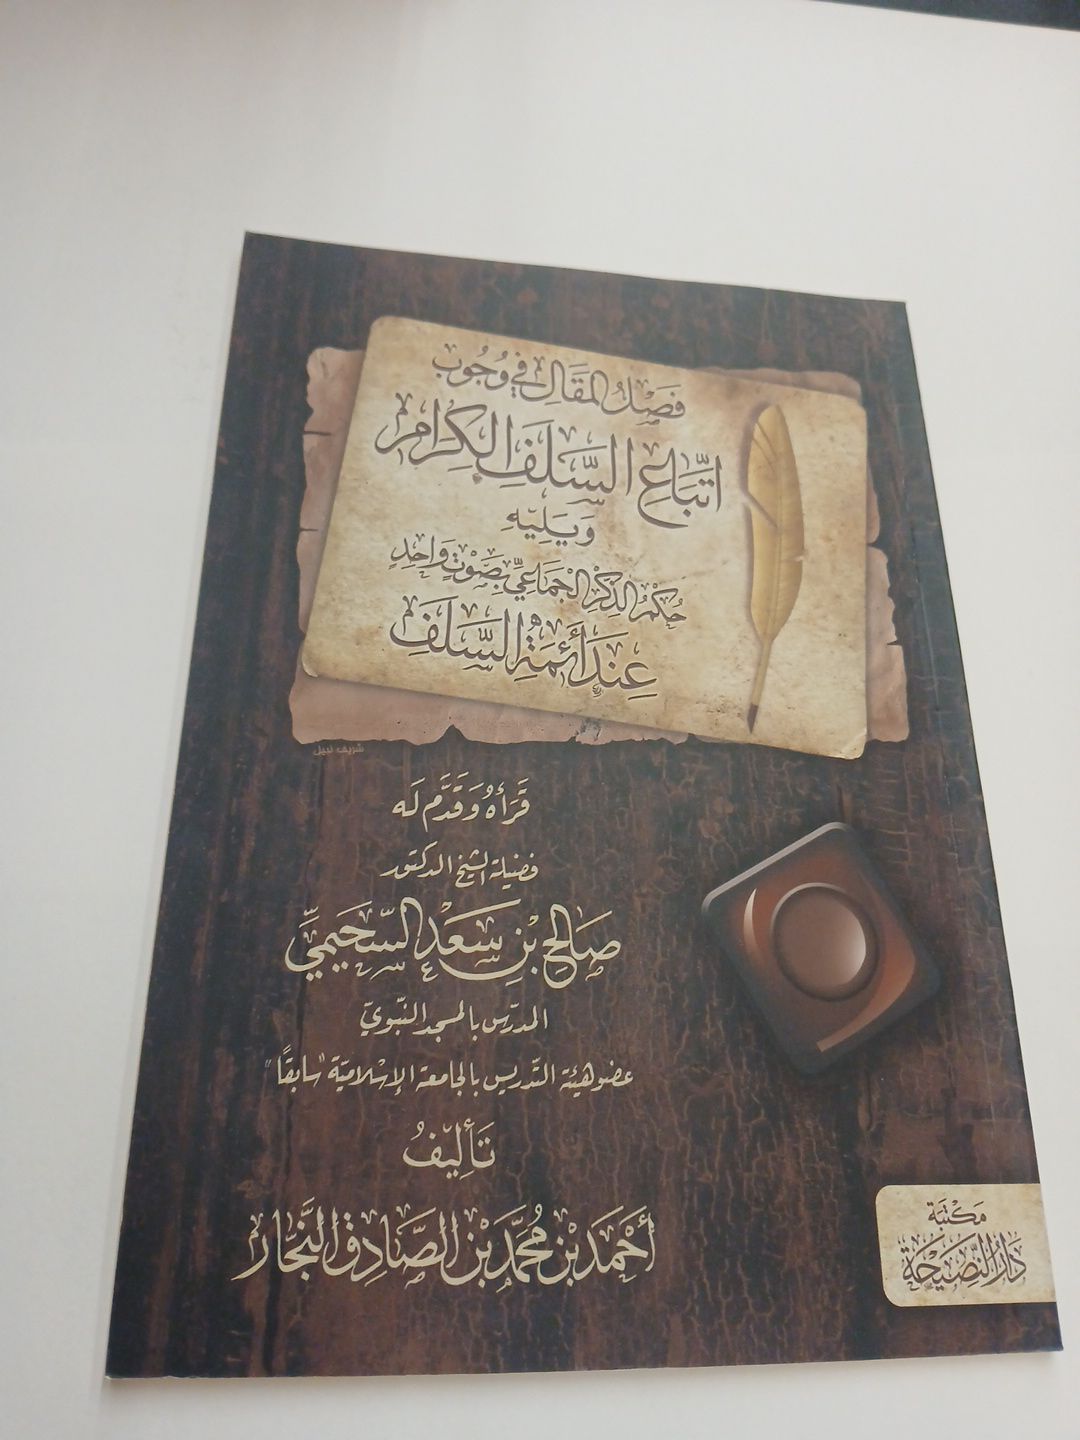 فَصْلُ المَقَالِ في وُجُوبِ
اتِّبَاعِ السَّلَفِ الكِرَامِ
وَيَلِيْهِ
حُكْمُ الذِّكْرِ الجَمَاعِيِّ بِصَوْتٍ وَاحِدٍ
عِنْدَ أَئِمَّةِ السَّلَفِ
شريف نبيل
قَرَأَهُ وَقَدَّمَ لَه
فضيلة الشيخ الدكتور
صَالح بْنِ سَعَدٍ السَّحَيمِيِّ
المدرّس بالمسجد النّبويّ
عضو هيئة التّدريس بالجامعة الإسْلاميّة "سابقًا"
تَأليْفُ
أَحْمَد بْن مُحَمَّد بْن الصَّادِق النَّجَار
مَكْتَبَة
دَارُ النَّصِيْحَة